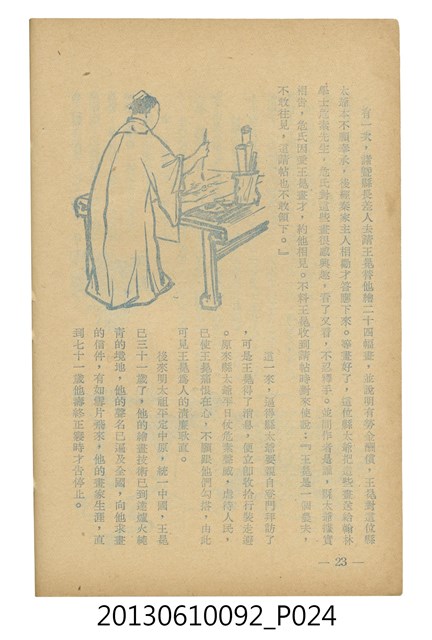 有一次，諸暨縣長差人去請王冕替他繪二十四幅畫，並說明有勞金酬償，王冕對這位縣
太爺本不願奉承，後經秦家主人相勸才答應下來。等畫好了，這位縣太爺把這些畫送給翰林
學士危素先生，危氏對這些畫很感興趣，看了又看，不忍釋手。並問作者是誰，縣太爺據實
相告，危氏因愛王冕畫才，約他相見。不料王冕收到請帖時對來使說：『王冕是一個農夫，
不敢往見，這請帖也不敢領下。』
這一來，逼得縣太爺要親自登門拜訪了
，可是王冕得了消息，便立卽收拾行裝走避
。原來縣太爺平日仗危素聲威，虐待人民，
已使王冕痛恨在心，不願跟他們勾搭，由此
可見王冕爲人的淸廉耿直。
後來明太祖平定中原，統一中國，王冕
已三十一歲了，他的繪畫技術已到達爐火純
靑的境地，他的聲名已遍及全國，向他求畫
的信件，有如雪片飛來，他的畫家生涯，直
到七十一歲他壽終正寢時才吿停止。
— 23 —
20130610092_P024